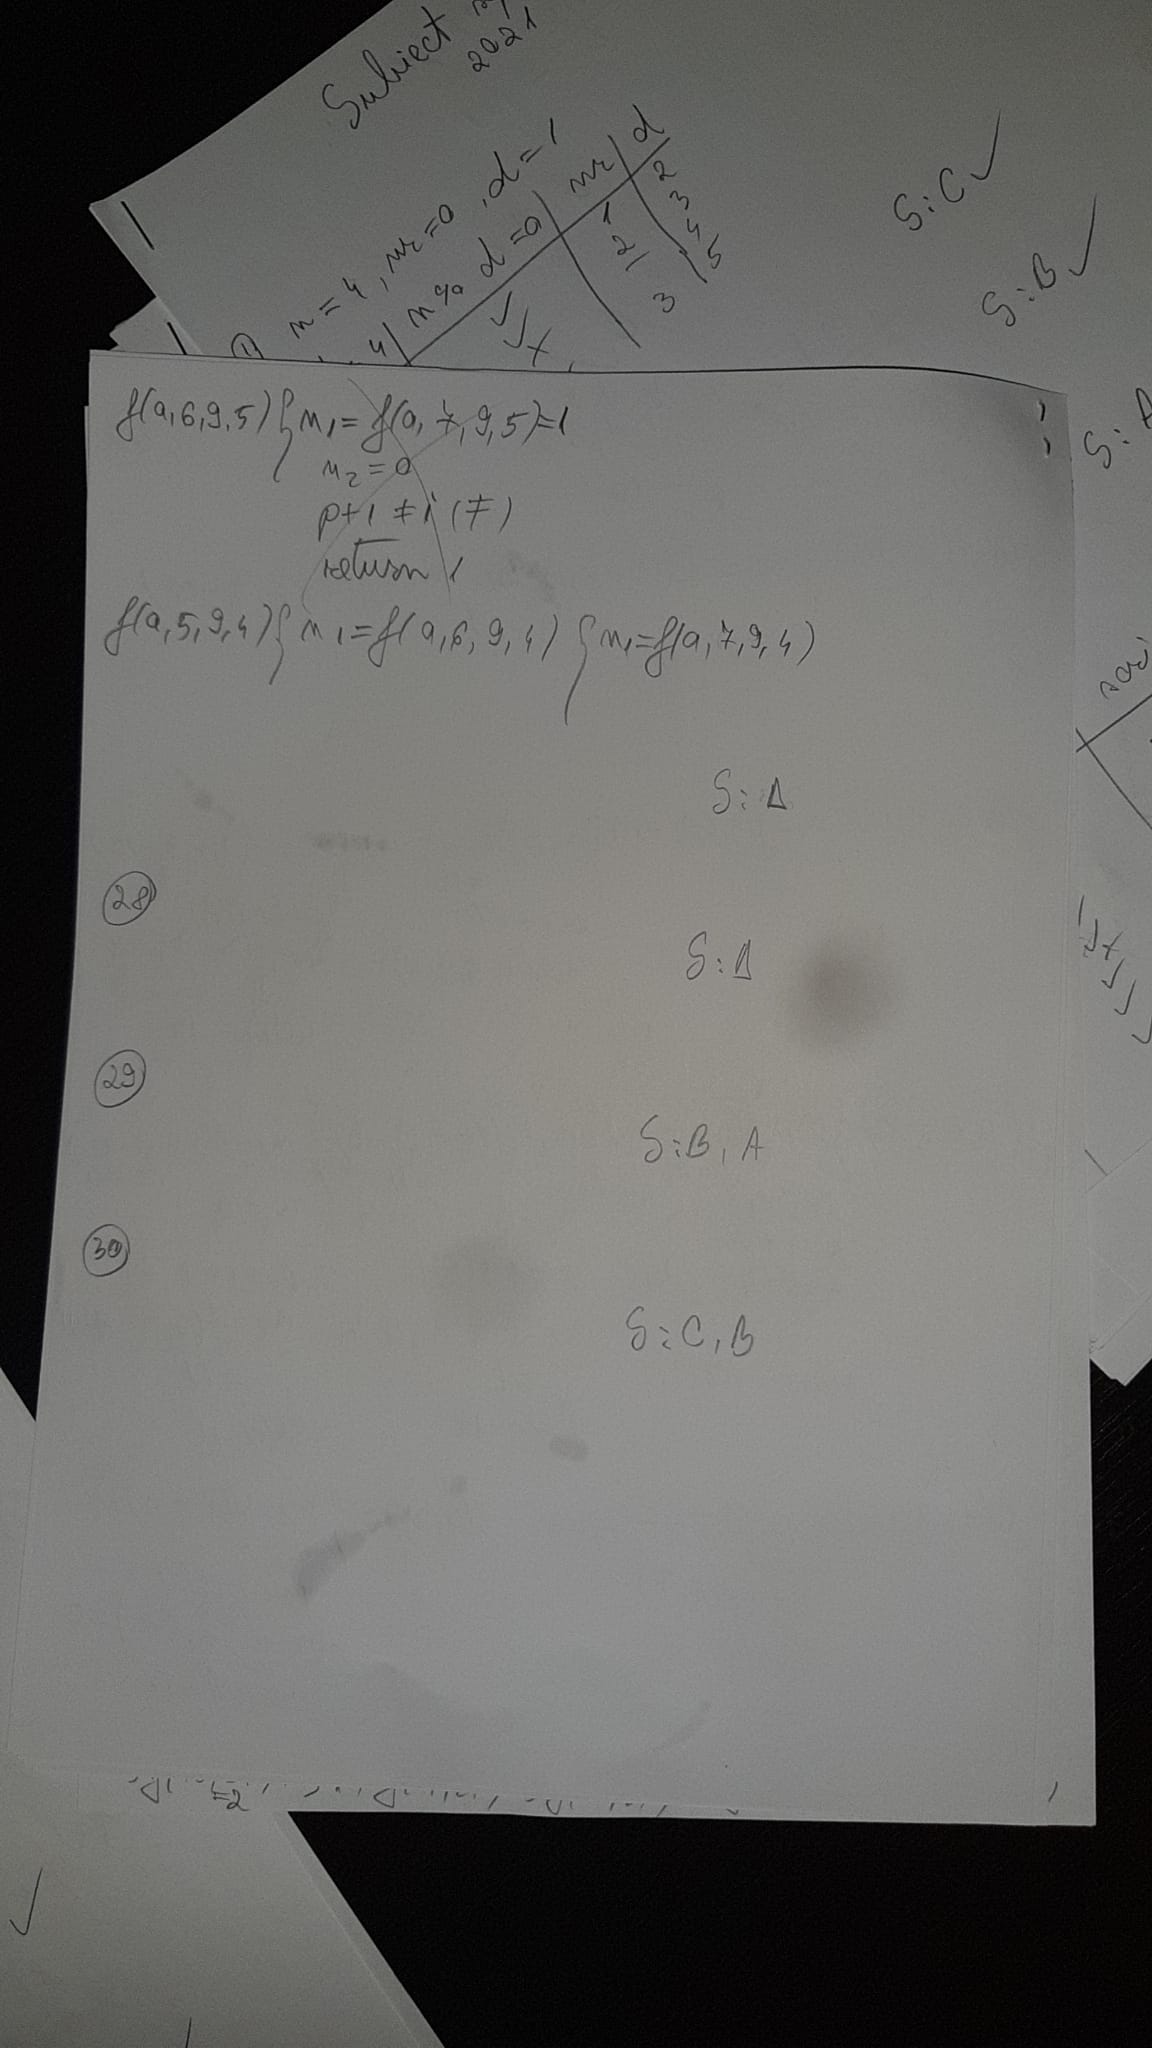 Subiect
2021
n=4, nr=0, d=1
n%d=0 | nr | d
1 2
2 3
4
3 5
S:C ✓
S:B ✓
S:
f(a,6,9,5) { n1=f(a,7,9,5)=1
n2=0
p+1≠i (F)
return 1
f(a,5,9,4) { n1=f(a,6,9,4) { n1=f(a,7,9,4)
S: A
28
S: A
29
S: B, A
30
S: C, B